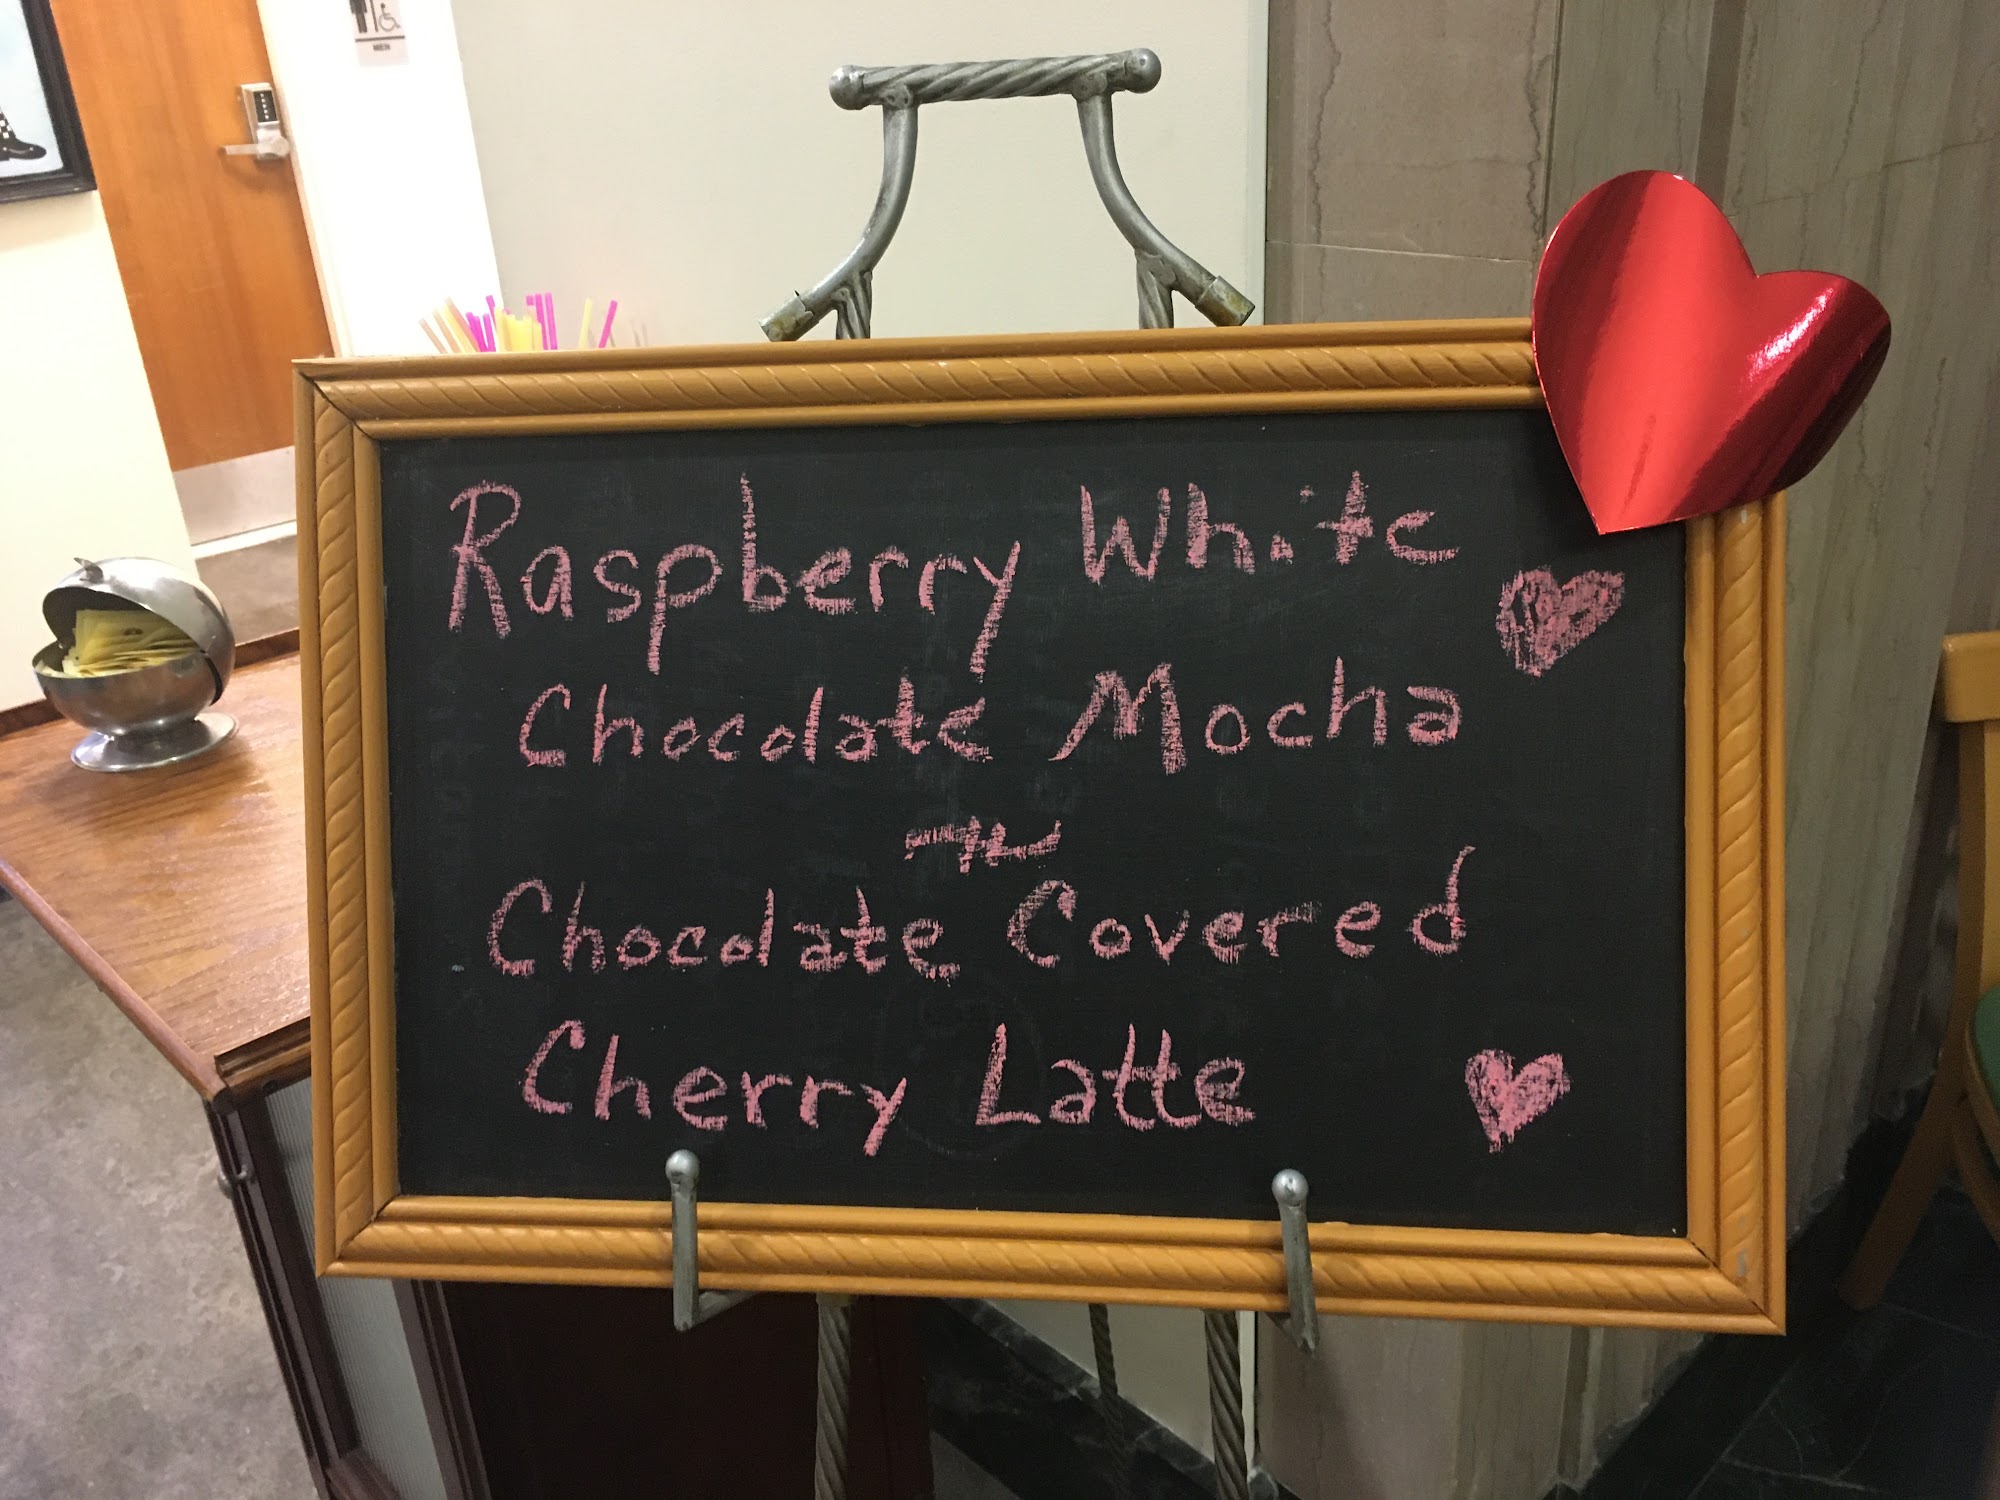 MEN
Raspberry White
Chocolate Mocha
~
Chocolate Covered
Cherry Latte